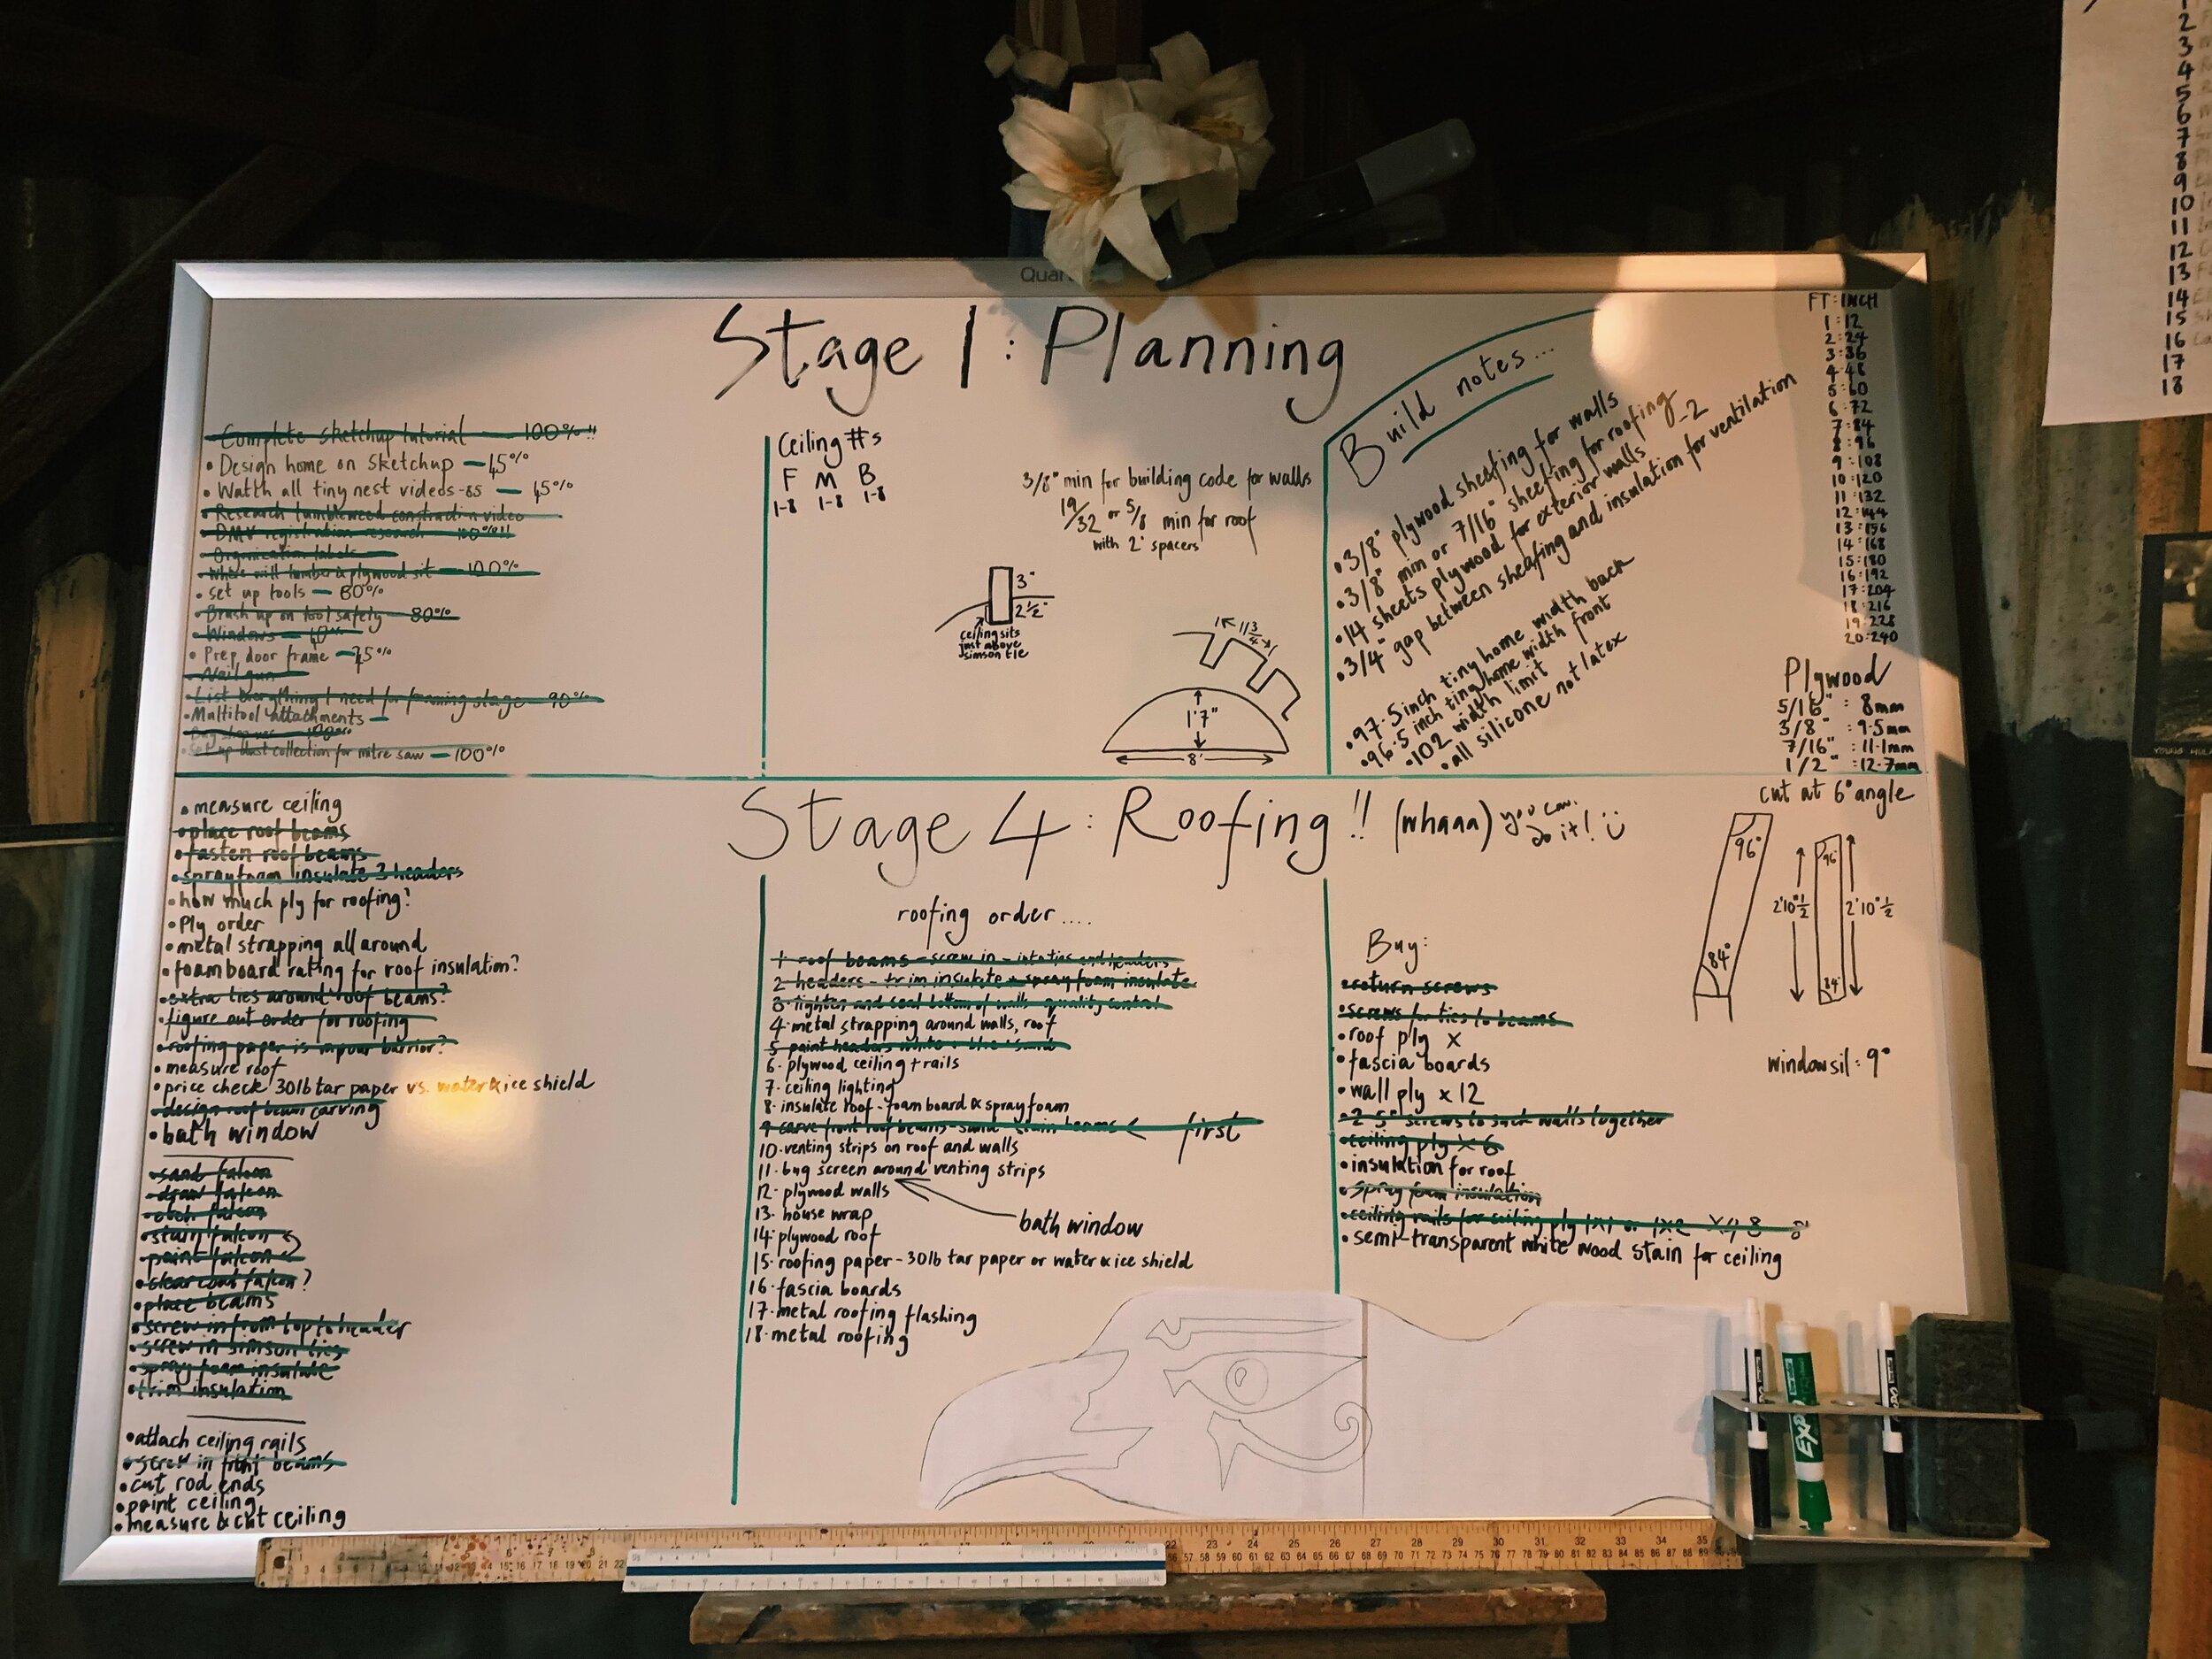 Quar
Stage 1: Planning
Complete sketchup tutorial — 100%!!
• Design home on sketchup — 45%
• Watch all tiny nest videos-85 — 45%
• Research tumbleweed construction video
• DMV registration research — 100%!!
• Organization labels —
• Where will lumber & plywood sit — 100%
• set up tools — 80%
• Brush up on tool safety — 80%
• Windows —
• Prep door frame — 75%
• Nail gun
• List everything I need for framing stage — 90%
• Multitool attachments —
• Set up dust collection for mitre saw — 100%
Ceiling #s
F M B
1-8 1-8 1-8
3/8" min for building code for walls
19/32 or 5/8 min for roof
with 2' spacers
3"
2½"
ceiling sits
just above
simson tie
11¾
1'7"
8'
Build notes...
• 3/8" plywood sheafing for walls
• 3/8" min or 7/16" sheeting for roofing
• 14 sheets plywood for exterior walls -2
• 3/4" gap between sheafing and insulation for ventilation
• 97.5 inch tiny home width back
• 96.5 inch tiny home width front
• 102 width limit
• all silicone not latex
FT:INCH
1:12
2:24
3:36
4:48
5:60
6:72
7:84
8:96
9:108
10:120
11:132
12:144
13:156
14:168
15:180
16:192
17:204
18:216
19:228
20:240
Plywood
5/16" : 8mm
3/8" : 9.5mm
7/16" : 11.1mm
1/2" : 12.7mm
Stage 4: Roofing!! (whaaa) you can do it!
• measure ceiling
• place roof beams
• fasten roof beams
• sprayfoam insulate 3 headers
• how much ply for roofing?
• Ply order
• metal strapping all around
• foam board rating for roof insulation?
• extra ties around roof beams?
• figure out order for roofing
• roofing paper is vapour barrier?
• measure roof
• price check 30lb tar paper vs. water & ice shield
• design roof beam carving
• bath window
• sand falcon
• draw falcon
• etch falcon
• stain falcon
• paint falcon
• clear coat falcon?
• place beams
• screw in from top to header
• screw in simson ties
• spray foam insulate
• trim insulation
• attach ceiling rails
• screw in front beams
• cut rod ends
• paint ceiling
• measure & cut ceiling
roofing order....
1· roof beams - screw in - into ties and headers
2· headers - trim insulate + spray foam insulate
3· tighten and seal bottom of walls - quality control
4· metal strapping around walls, roof
5· paint headers white
6· plywood ceiling + rails
7· ceiling lighting
8· insulate roof - foam board & spray foam
9· carve front roof beams - sand stain beams ← first
10· venting strips on roof and walls
11· bug screen around venting strips
12· plywood walls
bath window
13· house wrap
14· plywood roof
15· roofing paper - 30lb tar paper or water & ice shield
16· fascia boards
17· metal roofing flashing
18· metal roofing
Buy:
• return screws
• screws for ties to beams
• roof ply x
• fascia boards
• wall ply x 12
• 2 5" screws to suck walls together
• ceiling ply x 6
• insulation for roof
• spray foam insulation
• ceiling rails for ceiling ply 1x1 or 1x2
• semi-transparent white wood stain for ceiling
cut at 6° angle
96°
84°
2'10"½
96°
84°
2'10"½
windowsil: 9°
EXPO
1
2
3
4
5
6
7
8
9
10
11
12
13
14
15
16
17
18
22 23 24 25 26 27 28 29 30 31 32 33 34 35